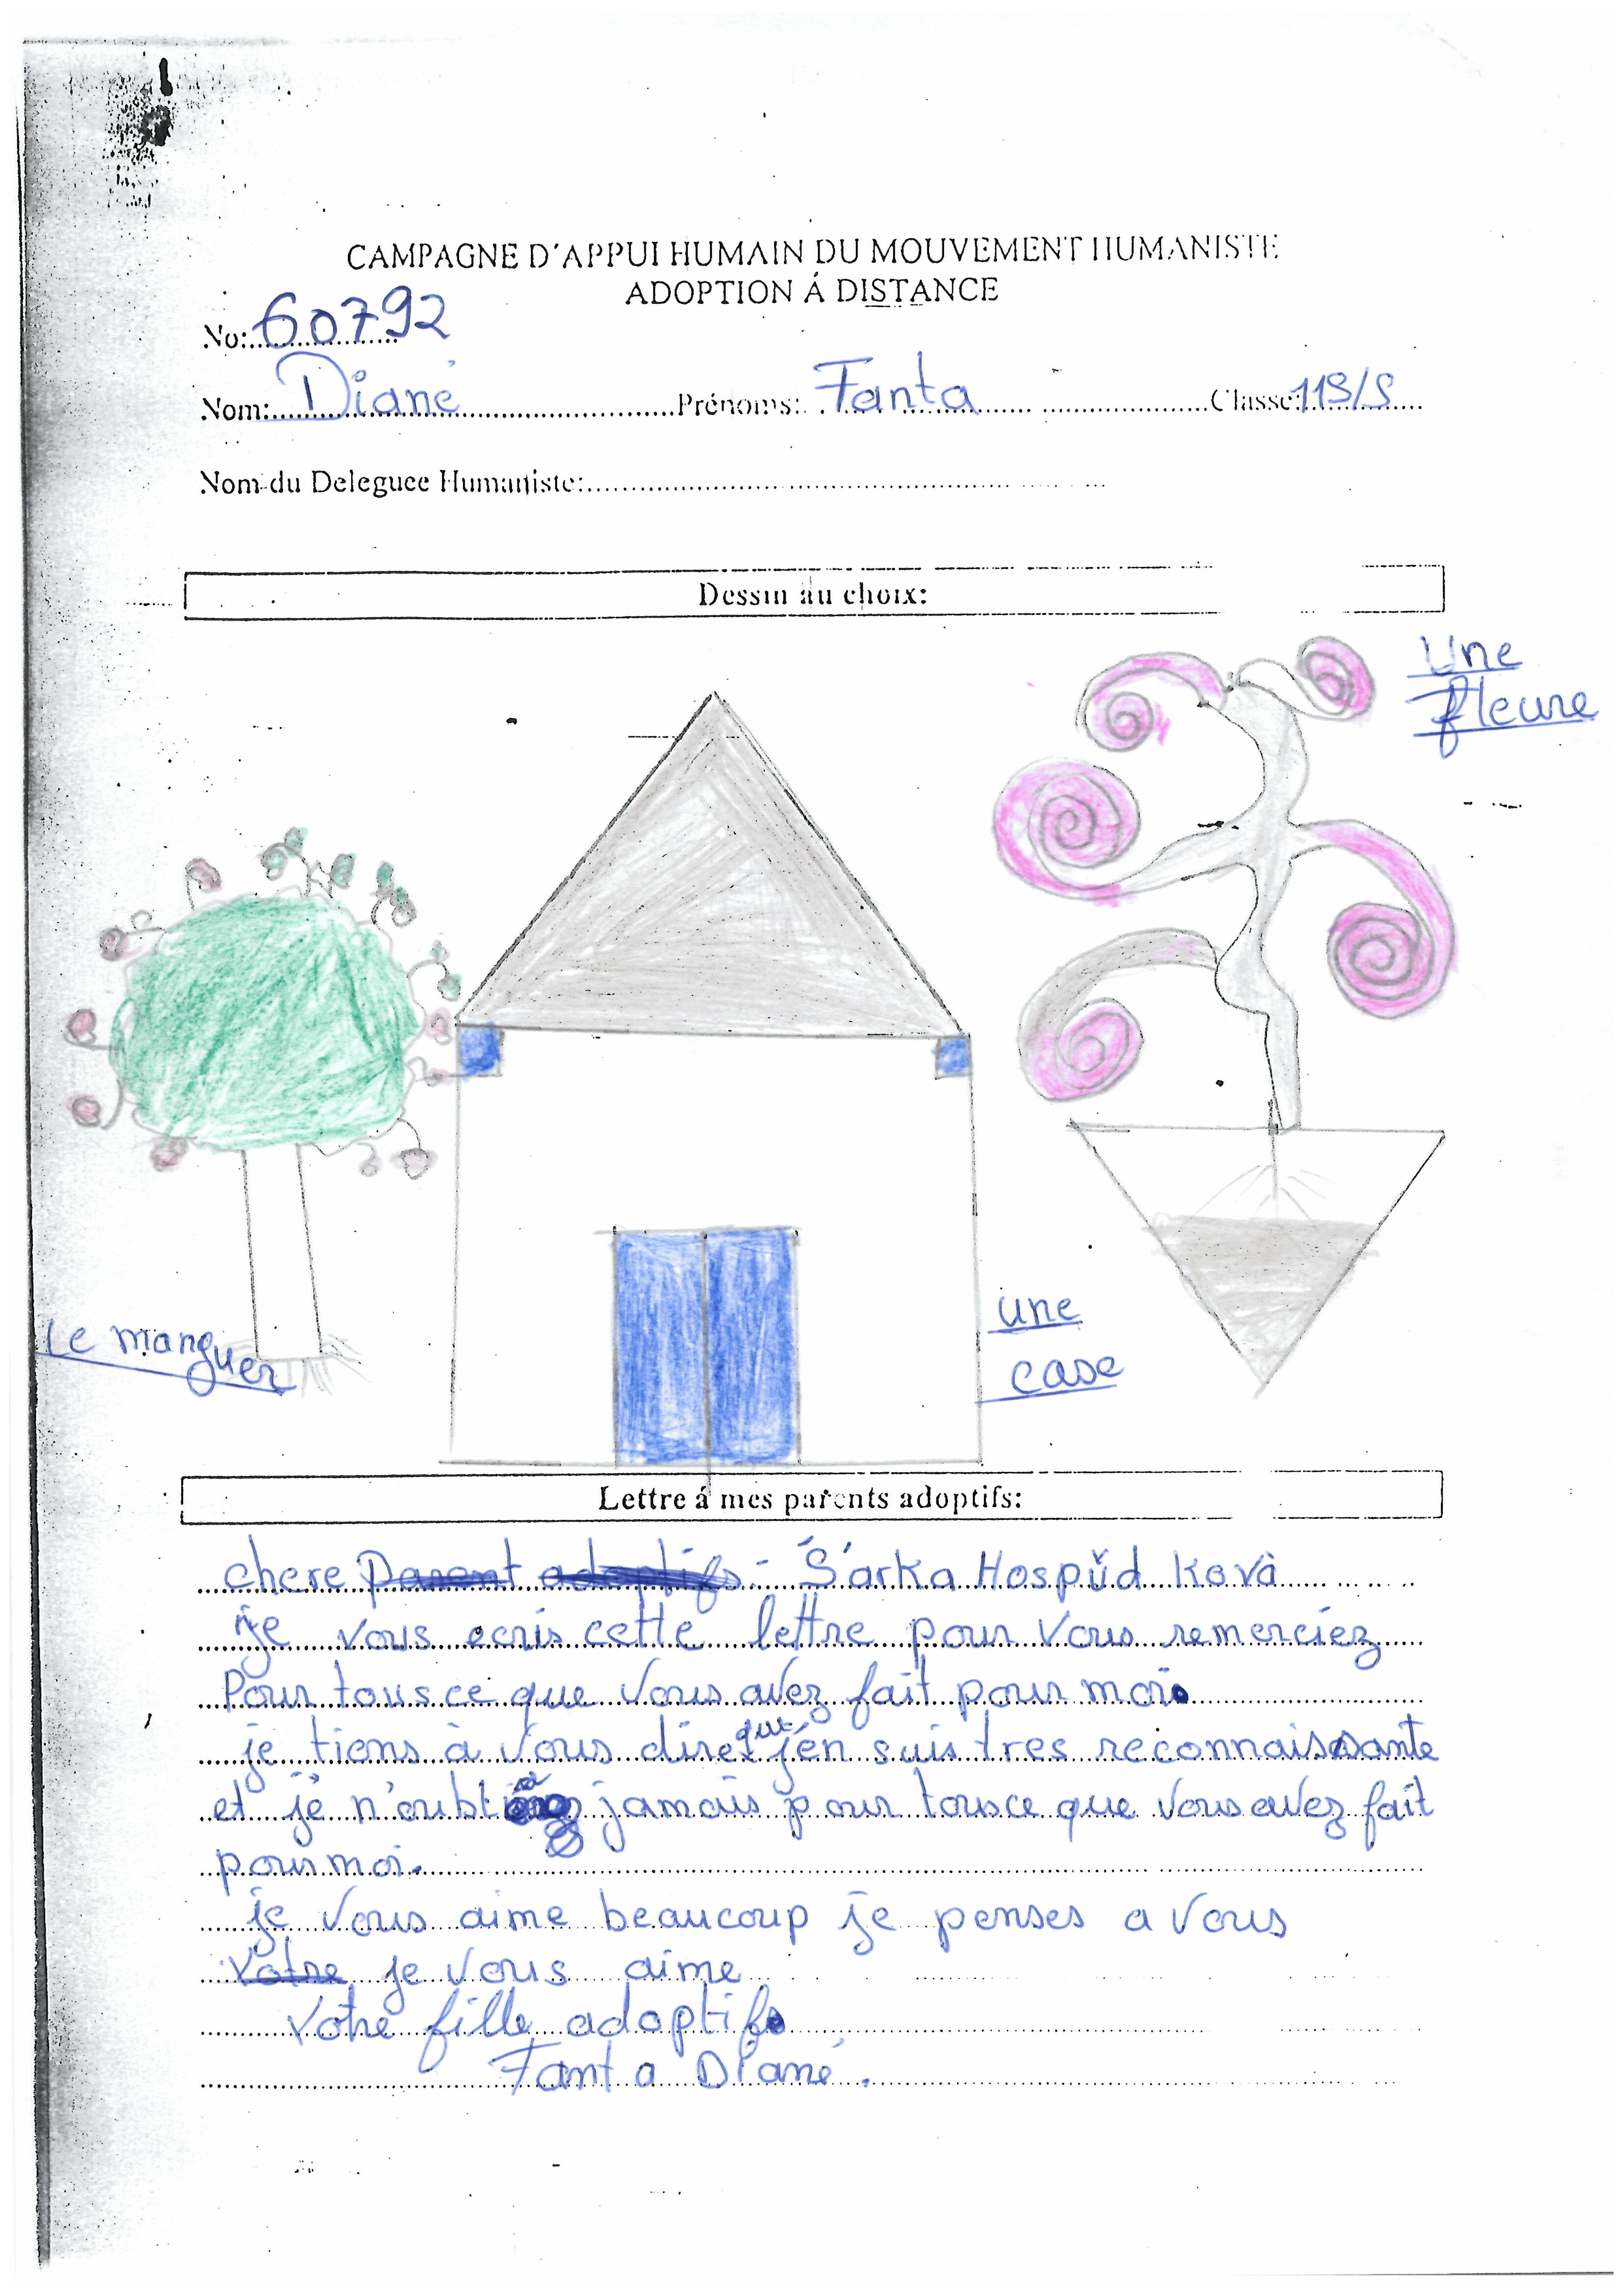 CAMPAGNE D'APPUI HUMAIN DU MOUVEMENT HUMANISTE
ADOPTION Á DISTANCE
No: 60792
Nom: Diané Prénoms: Fanta Classe: 11S/S
Nom du Deleguee Humaniste:
Dessin au choix:
Une
fleure
Le manguer
une
case
Lettre á mes parents adoptifs:
chere Parent adoptifs - Šarka Hospŭd Kovà
je vous ecris cette lettre pour vous remerciez
Pour tous ce que vous avez fait pour moi.
je tiens à vous dire que j'en suis tres reconnaissante
et je jamais pour tousce que vous avez fait
pour moi.
je vous aime beaucoup je penses a vous
votre je vous aime
Votre fille adoptif
Fanta Diané.